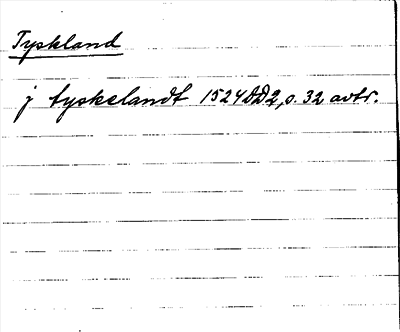 Tyskland
j tyskelandt 1524 DD2, s. 32 avtr.